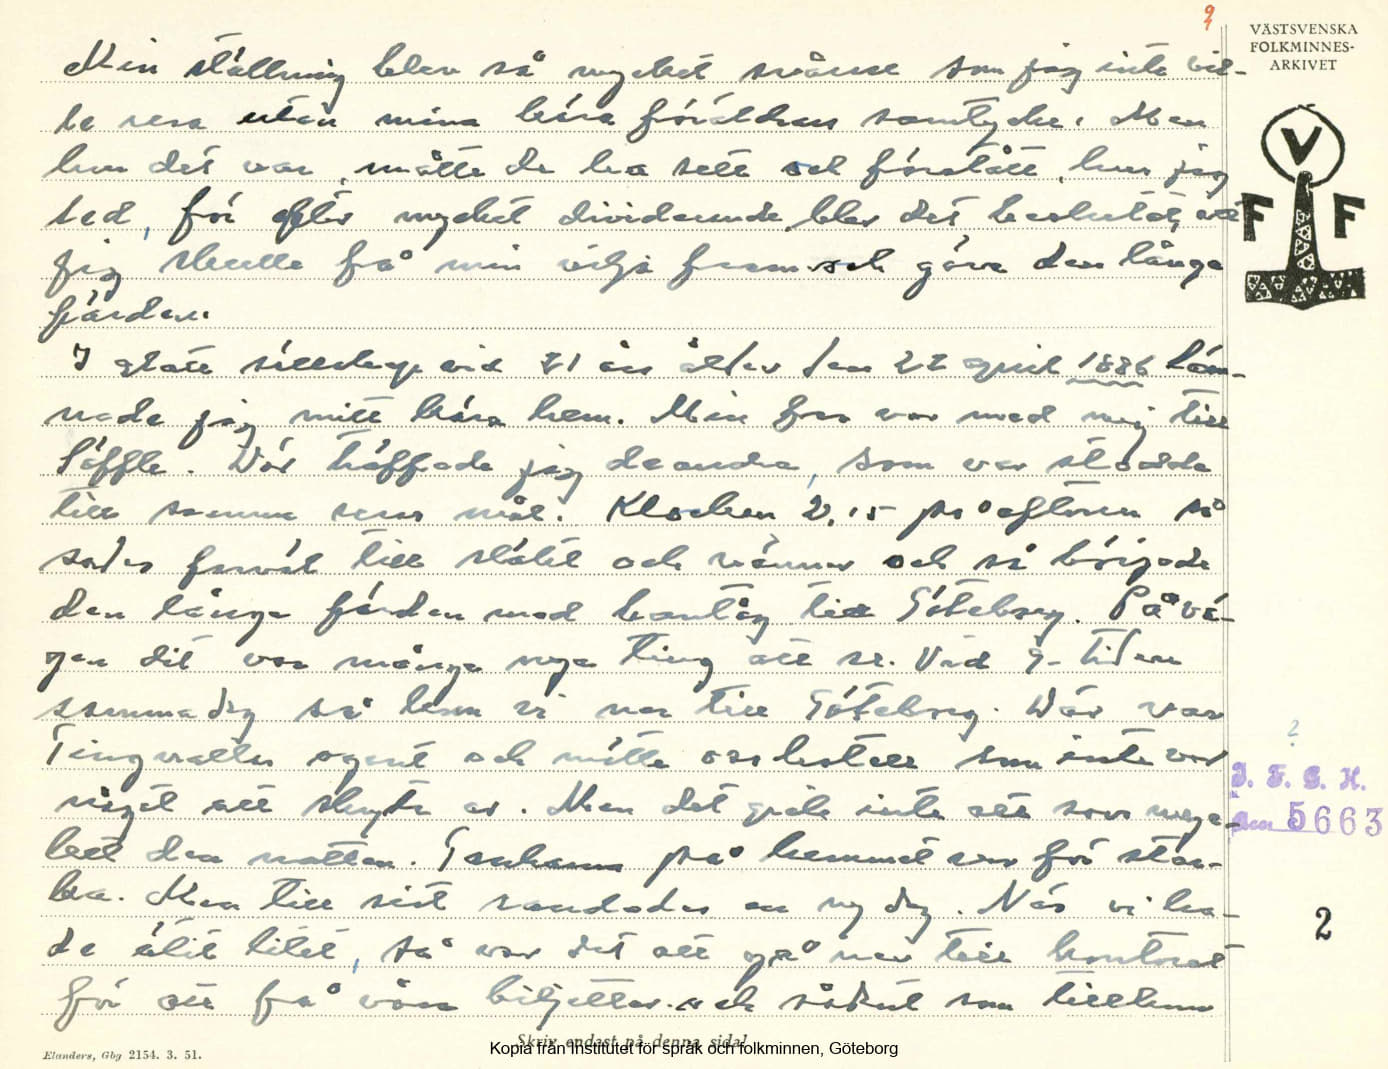 9
VÄSTSVENSKA
FOLKMINNES-
ARKIVET
V
F F
Min ställning blev så mycket svårare som jag inte vil-
le resa utan mina kära föräldrars samtycke. Men
hur det var, måtte de ha sett och förstått, hur jag
led, för efter mycket dividerande, blev det beslutat, att
jag skulle få min vilja fram och göra den långa
färden.
I glatt sällskap vid 21 års ålder den 22 april 1886 läm-
nade jag mitt kära hem. Min far var med mej till
Säffle. Där träffade jag de andra, som var stadda
till samma resas mål. Klockan 2,15 på aftonen så
sades farväl till släkt och vänner och så började
den långa färden med bantåg till Göteborg. På vä-
gen dit var många nya ting att se. Vid 9-tiden
samma dag så kom vi ner till Göteborg. Där var
Tingvallas agent och mötte oss hotell som inte var
något att skryta av. Men det gick inte att sova myc-
ket den natten. Tankarna på hemmet var för star-
ka. Men till sist randades en ny dag. När vi ha-
de ätit litet, så var det att gå ner till kontoret
för att få våra biljetter och sådant som tillkom
?
I. F. G. H.
5663
2
Skriv endast på denna sida!
Elanders, Gbg 2154. 3. 51.
Kopia från Institutet för språk och folkminnen, Göteborg